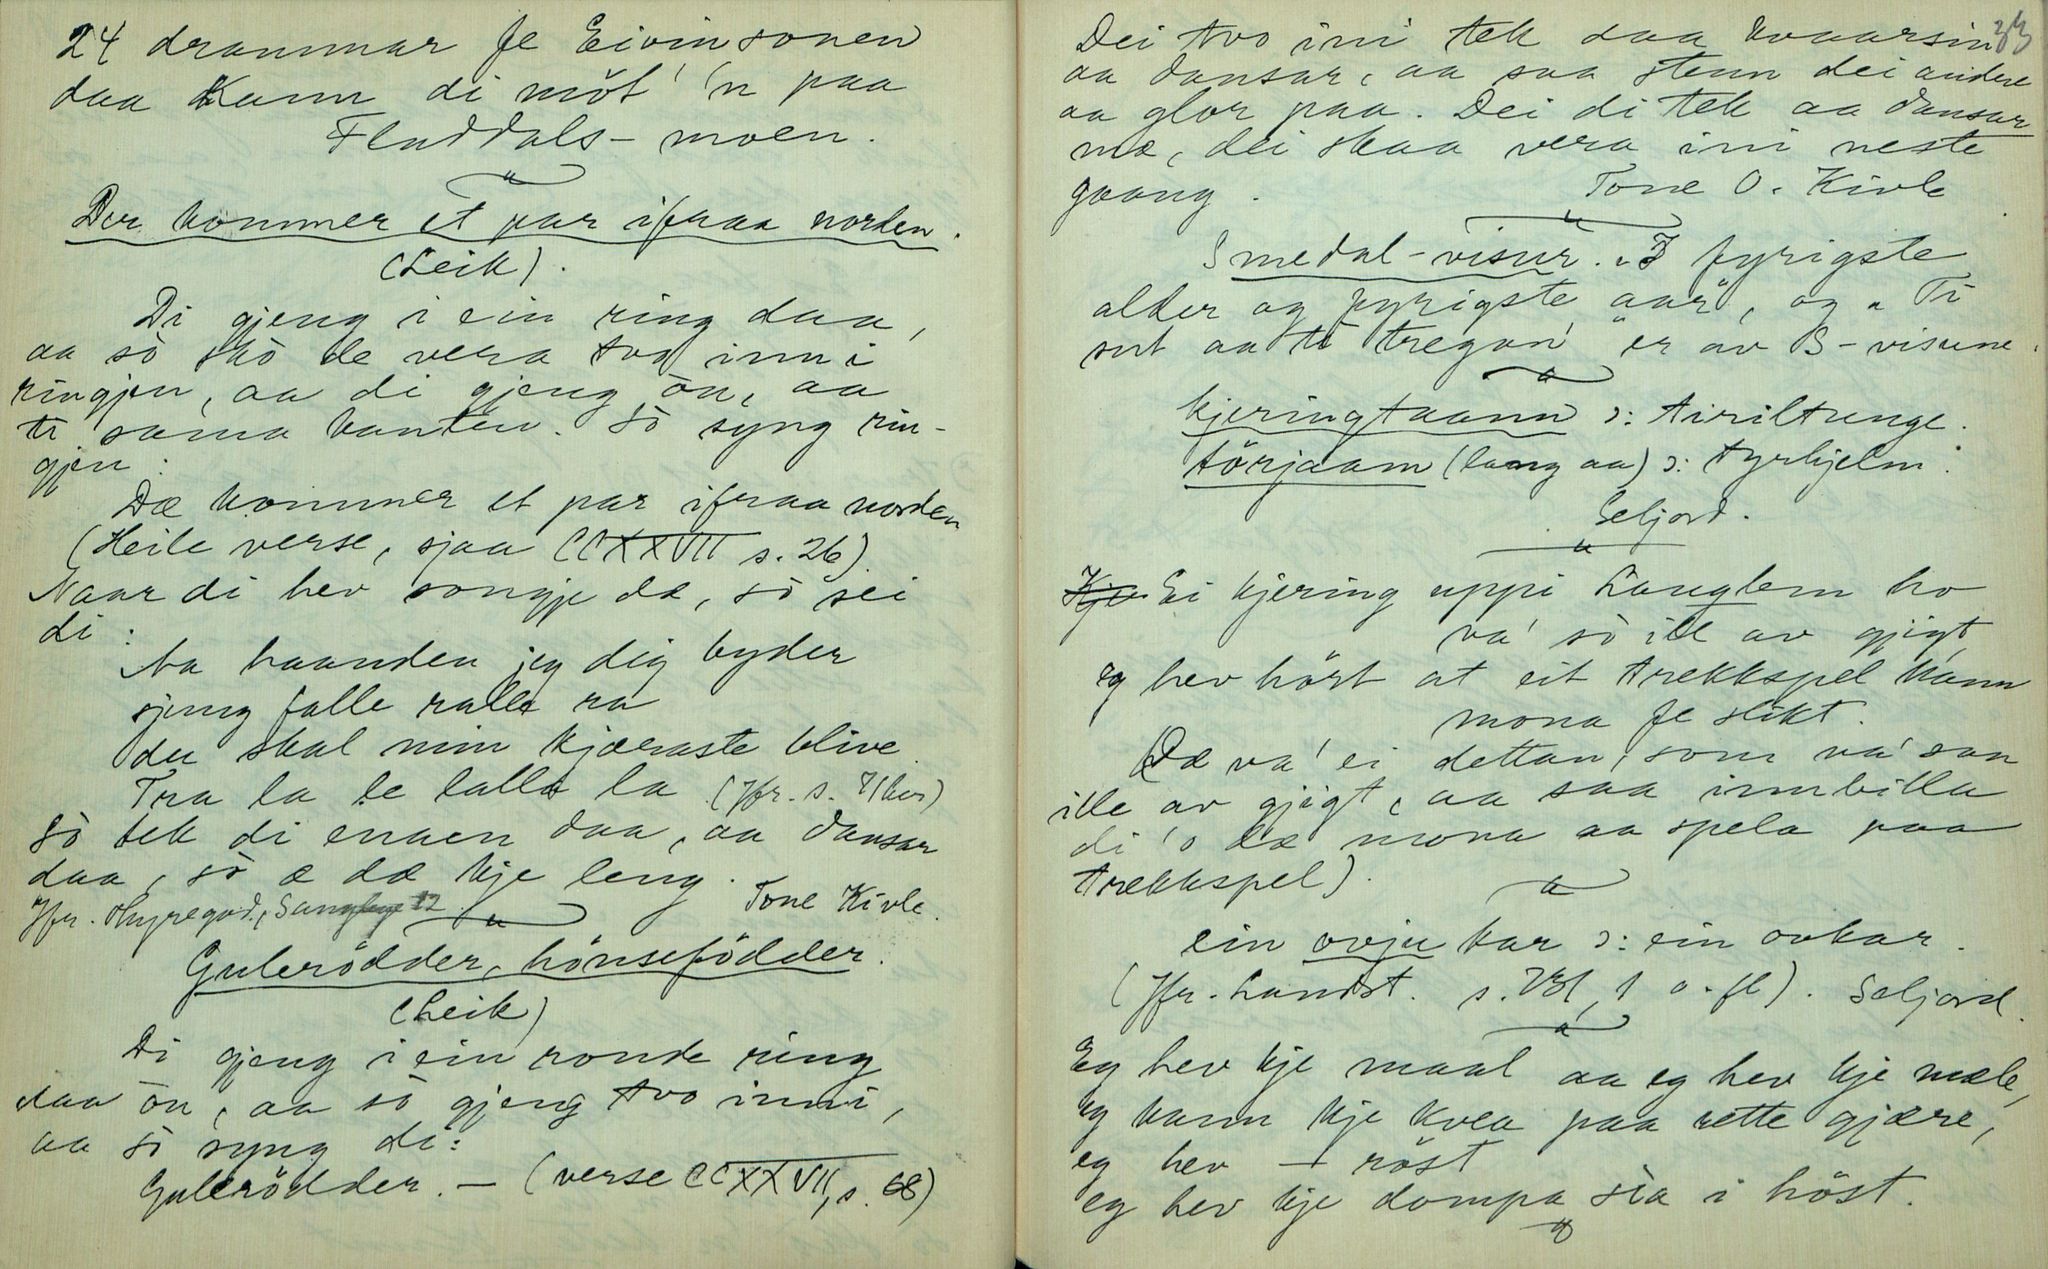 24 drammar fe Eivinsonen
daa kann di möt' 'n paa
Fluddals-moen.
Der kommer et par ifraa norden.
(Leik).
Di gjeng i ein ring daa,
aa sò skò de vera tvo inni
ringjen, aa di gjeng òn, aa
ti sama kanten. Sò syng rin-
gjen:
Dæ kommer et par ifraa norden
(Heile verse, sjaa CCXXVII s. 26)
Naar di hev songje dæ, sò sei
di:
Aa haanden jeg dig byder
sjung falle ralla ra
du skal min kjæraste blive
Tra la le lalla la (Jfr. s. 71 her)
Sò tek di einaen daa, aa dansar
daa, sò æ dæ kje leng.
Tone Kivle.
Jfr. Thyregod, Sanglege 12
Gulerödder, hönsefödder.
(Leik)
Di gjeng i ein ronde ring
daa òn, aa sò gjeng tvo inni,
aa sò syng di:
Gulerödder. — (verse CCXXVII, s. 68)
33
Dei tvo ini tek daa kvaarsin
aa dansar, aa saa stenn dei andere
aa glor paa. Dei di tek aa dansar
mæ, dei skaa vera ini neste
gaang.
Tone O. Kivle
Smedal-visur. "I fyrigste
alder og fyrigste aar", og "Ti
sut aa ti tregan" er av S-visune.
kjeringtaann ɔ: tiriltunge.
törjaam (lang aa) ɔ: tyrhjelm.
Seljord.
Kje Ei kjering uppi Langlem ho
va' sò ill av gjigt,
eg hev hört at eit trekkspel kann
mona fe slikt.
(Dæ va' ei dettan, som va' san
ille av gjigt, aa saa innbilla
di 'o dæ mona aa spela paa
trekkspel).
ein ovju kar ɔ: ein ovkar.
(Jfr. Landst. s. 1 o. fl). Seljord.
Eg hev kje maal aa eg hev kje mæle,
eg kann kje kvea paa rette gjære,
eg hev — röst
eg hev kje dompa sia i höst.